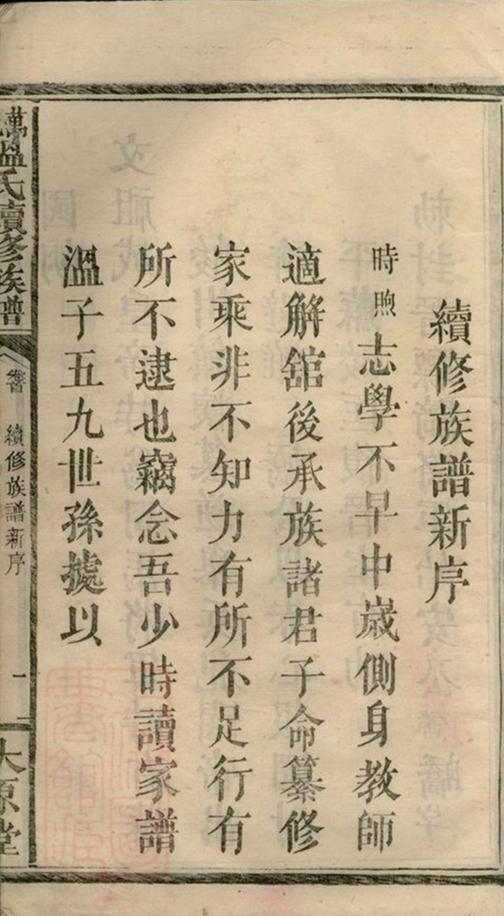 續修族譜新序
時煦志學不早中歲側身教師
適解舘後承族諸君子命纂修
家乘非不知力有所不足行有
所不逮也竊念吾少時讀家譜
溫子五九世孫據以
溫氏續修族譜
續修族譜新序
一
太原堂